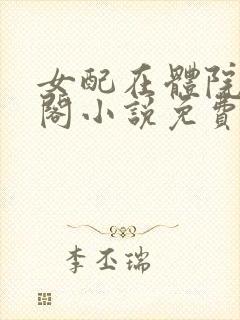 女配在體院
閣小說免費
李丕瑞